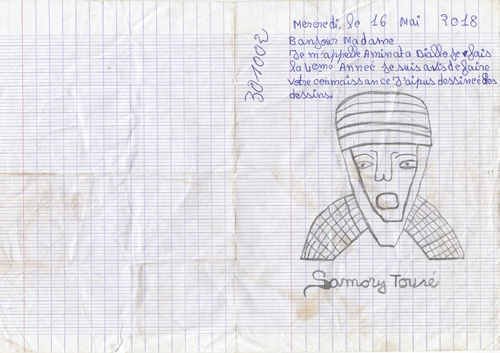 Mercredi, le 16 Mai 2018
Bonjour Madame
Je m'appelle Aminata Diallo je fais
la 4eme Anneé je suis avis de faire
votre connaissance J'ai pus dessineé des
dessins.
301002
Samory Touré